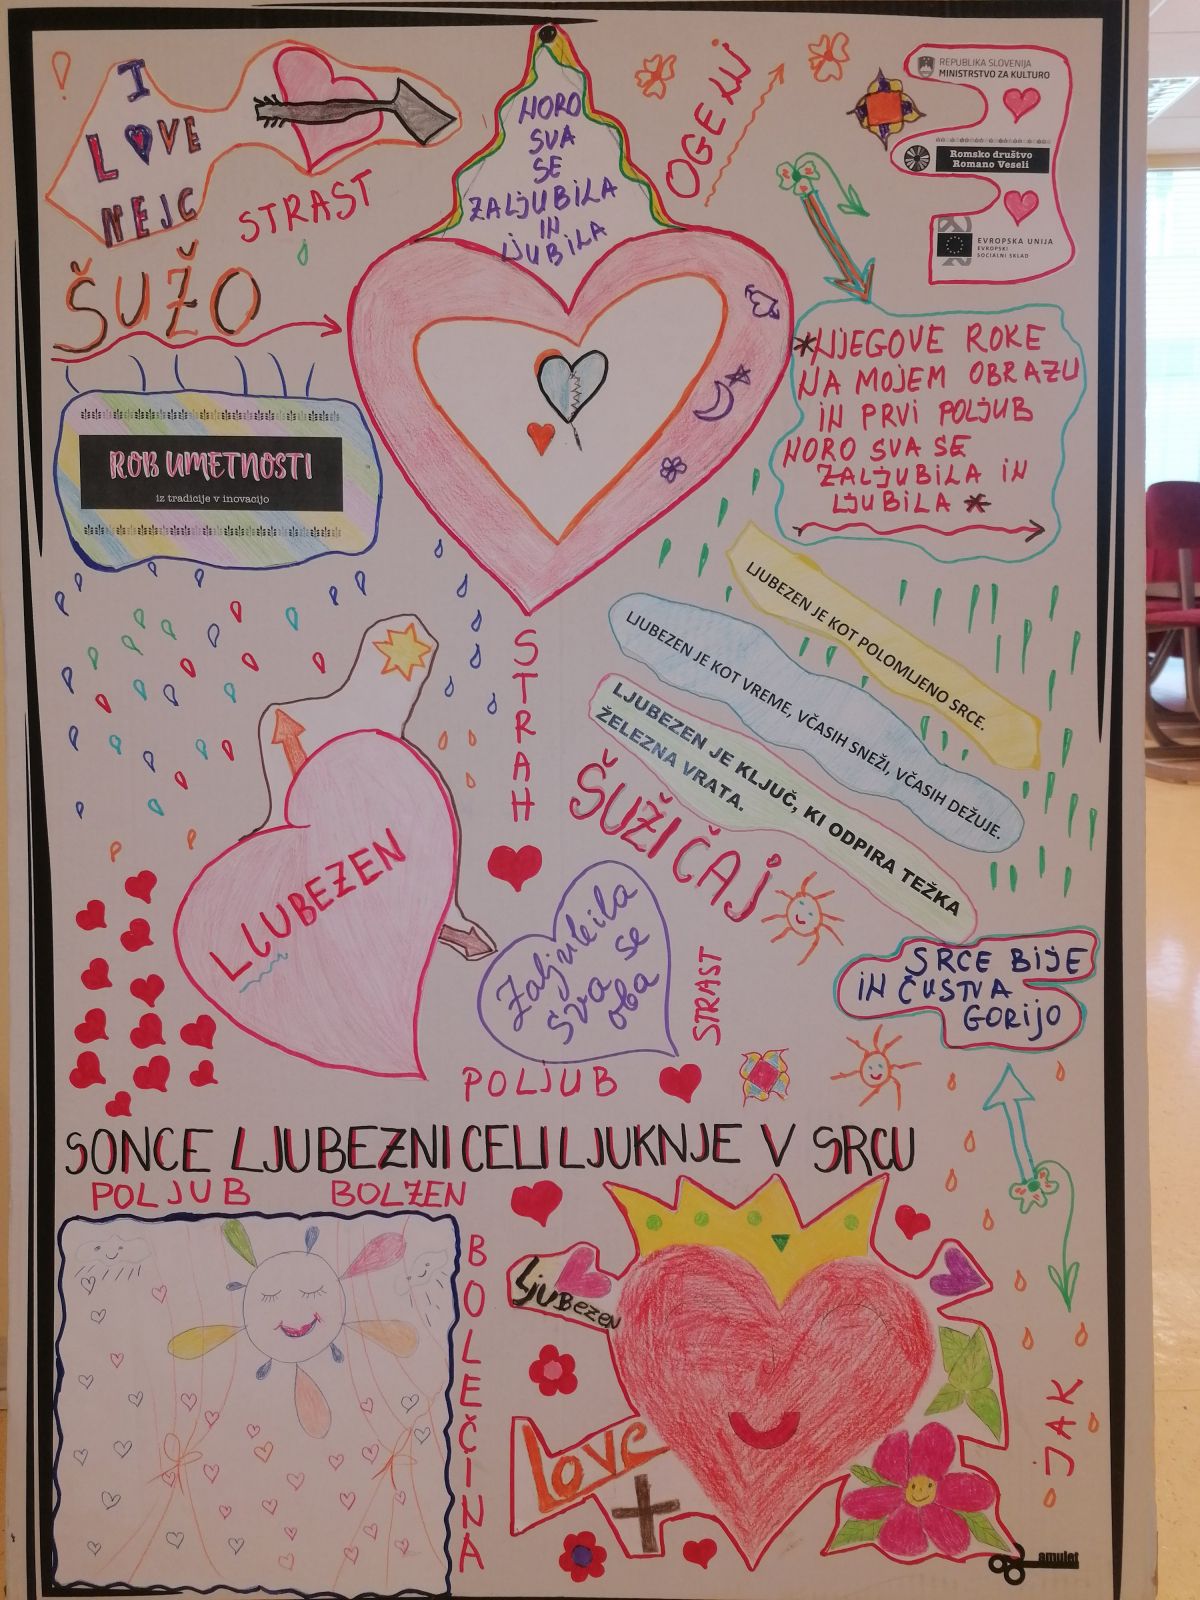 I
LOVE
NEJC
STRAST
ŠUŽO
NORO
SVA
SE
ZALJUBILA
IN
LJUBILA
OGENJ
REPUBLIKA SLOVENIJA
MINISTRSTVO ZA KULTURO
Romsko društvo
Romano Veseli
EVROPSKA UNIJA
EVROPSKI
SOCIALNI SKLAD
ROB UMETNOSTI
iz tradicije v inovacijo
*NJEGOVE ROKE
NA MOJEM OBRAZU
IN PRVI POLJUB
NORO SVA SE
ZALJUBILA IN
LJUBILA *
LJUBEZEN JE KOT POLOMLJENO SRCE.
LJUBEZEN JE KOT VREME, VČASIH SNEŽI, VČASIH DEŽUJE.
LJUBEZEN JE KLJUČ, KI ODPIRA TEŽKA
ŽELEZNA VRATA.
STRAH
ŠUŽIČAJ
LJUBEZEN
Zaljubila
sva se
oba
STRAST
SRCE BIJE
IN ČUSTVA
GORIJO
POLJUB
SONCE LJUBEZNI CELI LJUKNJE V SRCU
POLJUB
BOLZEN
BOLEČINA
LJUBEZEN
Love
JAK
amulet